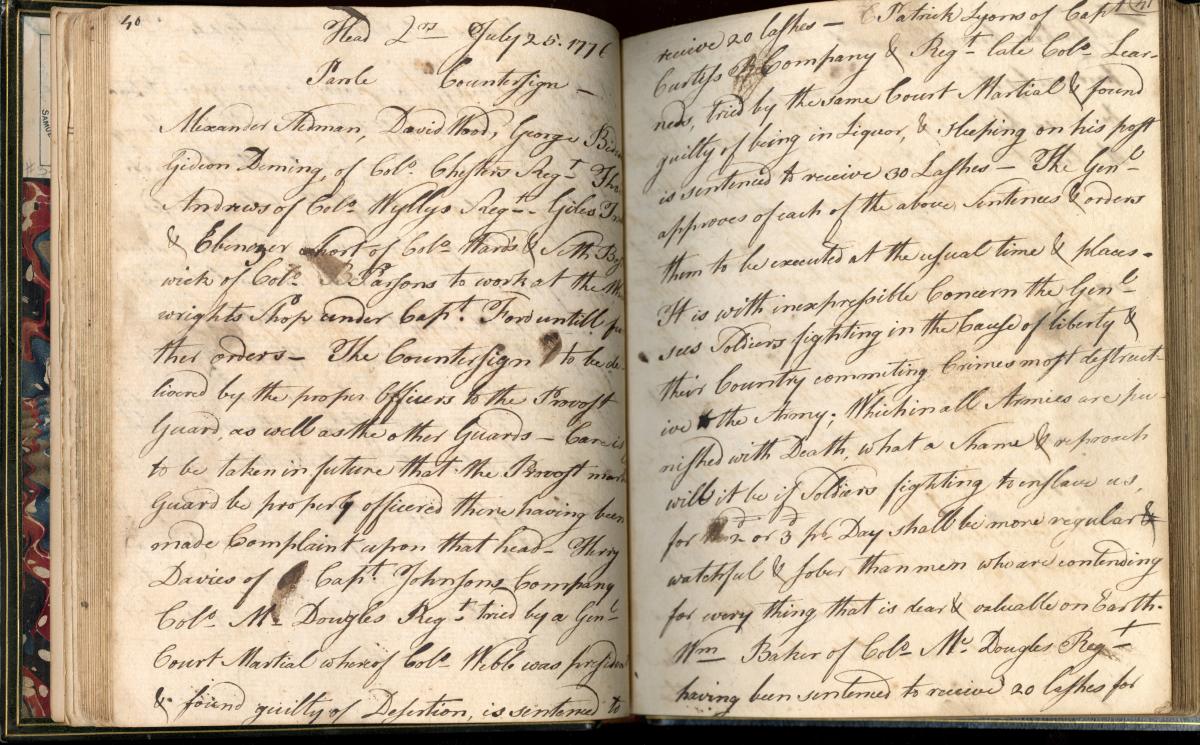 40
Head Qrs July 25. 1776
Parole Countersign —
Alexander Aidman, David Wood, George
Gideon Deming, of Colo. Chesters Regt
Andrews of Colo. Wyllys Regt. Giles
& Ebenezer Short of Colo Wards & Seth
wick of Colo. Parsons to work at the
wrights Shop under Capt. Ford untill
ther orders — The Countersign to be de-
livered by the proper Officers to the Provost
Guard, as well as the other Guards — Care is
to be taken in future that the Provost
Guard be properly officered there having been
made Complaint upon that head — Henry
Davies of Capt. Johnsons Company
Colo. Mc. Dougles Regt tried by a Genl
Court Martial whereof Colo. Webb was presiden
& found guilty of Desertion, is sentenced to
41
receive 20 lashes — Patrick Lyons of Capt
Curtiss Company & Regt late Colo. Lear-
neds, tried by the same Court Martial & found
guilty of being in Liquor, & sleeping on his post
is sentenced to receive 30 Lashes — The Genl
approves of each of the above Sentences & orders
them to be executed at the usual time & places -
It is with inexpressible Concern the Genl
sees Soldiers fighting in the Cause of liberty &
their Country commiting Crimes most destruct-
ive to the Army; Which in all Armies are pu-
nished with Death, what a shame & reproach
will it be if Soldiers fighting to enslave us,
for 2d or 3d pr. Day shall be more regular &
watchful & sober than men who are contending
for every thing that is dear & valuable on Earth.
Wm Baker of Colo Mc Dougles Regt
having been sentenced to receive 20 lashes for